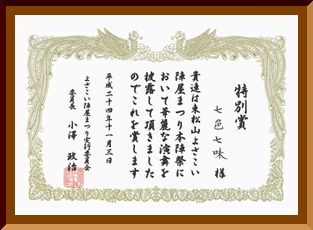 特別賞
七色七味 様
貴連は東松山よさこい
陣屋まつり本陣祭に
おいて華麗な演舞を
披露して頂きました
のでこれを賞します
平成二十四年十一月三日
よさこい陣屋まつり実行委員会
委員長 小澤 政治